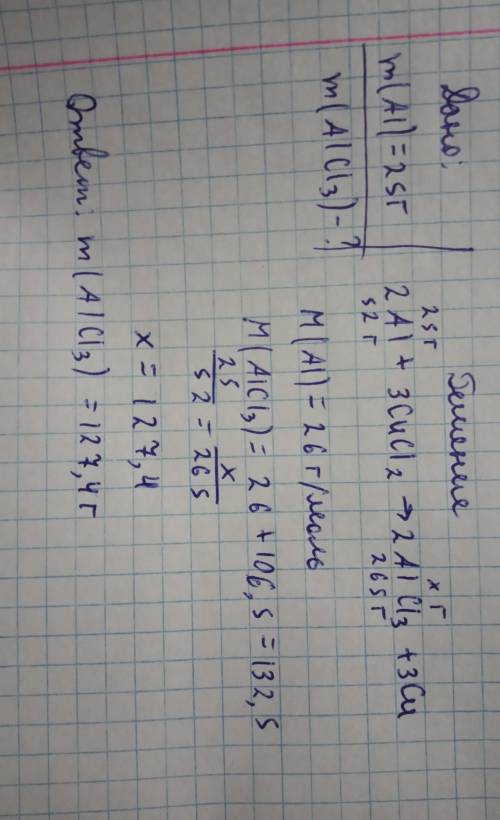 Дано:
m(Al)=25г
m(AlCl₃)-?
Решение
25г x г
2Al + 3CuCl₂ → 2AlCl₃ + 3Cu
52г 265г
M(Al) = 26 г/моль
M(AlCl₃) = 26 + 106,5 = 132,5
25/52 = x/265
x = 127,4
Ответ: m(AlCl₃) = 127,4г